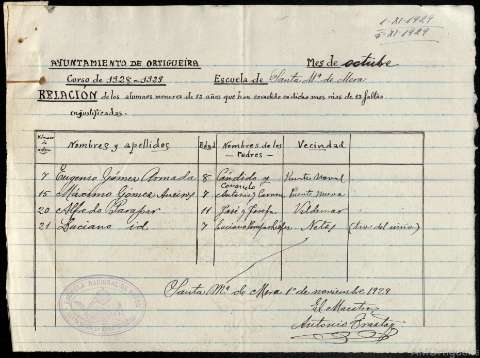 1-XI-1929
5-XI-1929
AYUNTAMIENTO DE ORTIGUEIRA Mes de octubre
Curso de 1928-1929 Escuela de Santa Mª de Mera
RELACIÓN de los alumnos menores de 12 años que han cometido en dicho mes más de 12 faltas
injustificadas.
Nombres y apellidos Edad Nombres de los Padres Vecindad
7 Eugenio Gómez Armada 8 Cándido y Consuelo
15 Máximo Gómez 7 Antonio y Carmen Puente Nueva
20 Alfredo 11 José y Josefa Vildemar
21 Luciano id. 7 Luciano
Santa Mª de Mera 1º de noviembre 1929
El Maestro
Antonio